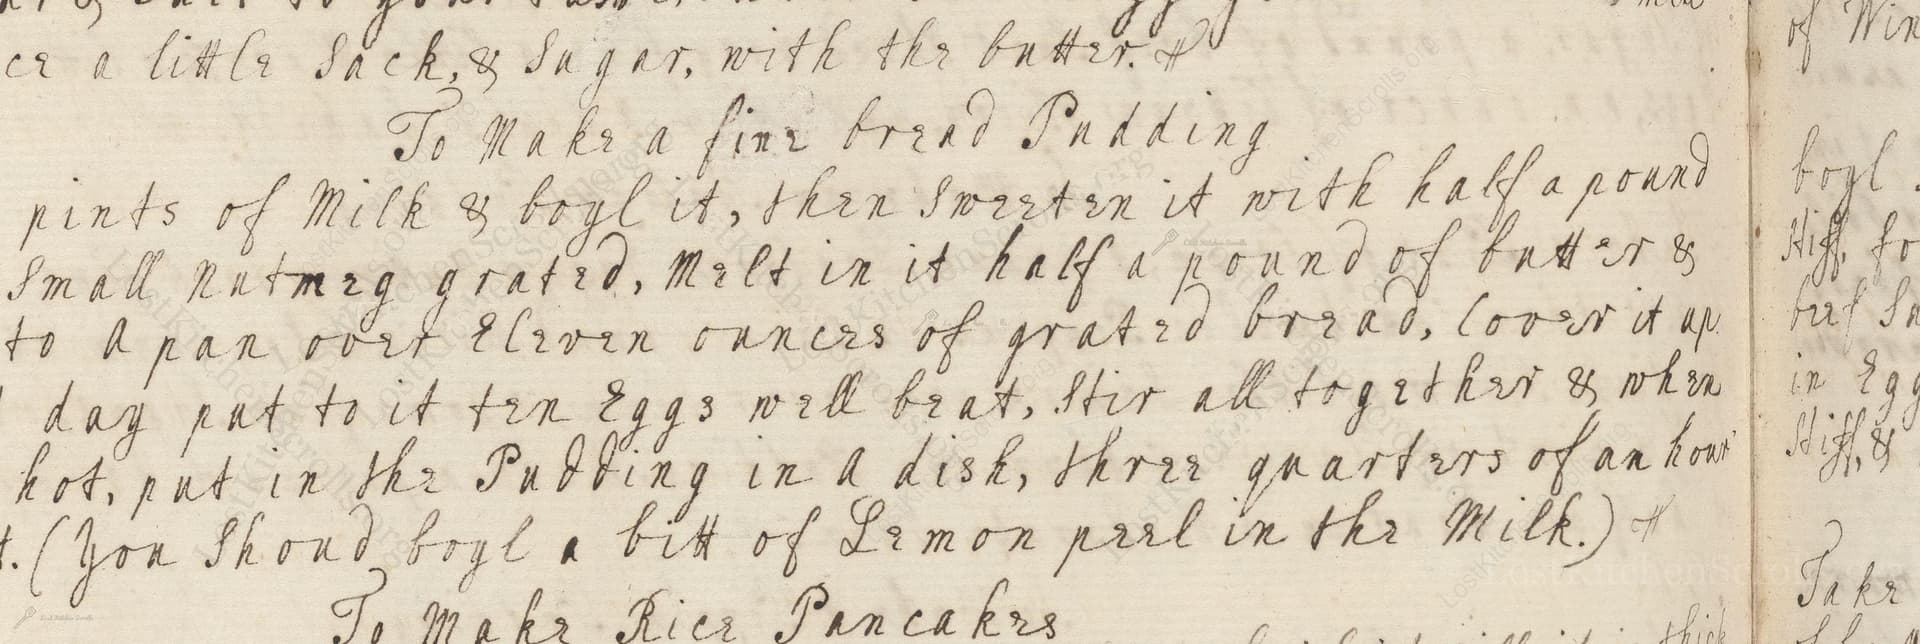 ce a little Sack, & Sugar, with the butter.
To Make a fine bread Pudding
pints of Milk & boyl it, then Sweeten it with half a pound
Small Nutmeg grated, Melt in it half a pound of butter &
to A pan over Eleven ounces of grated bread, Cover it up
day put to it ten Eggs well beat, Stir all together & when
hot, put in the Pudding in A dish, three quarters of an hour
t. (You Shoud boyl a bitt of Lemon peel in the Milk.)
To Make Rice Pancakes
of Win
boyl
Stiff, fo
beef Su
in Egg
Stiff, &
Take